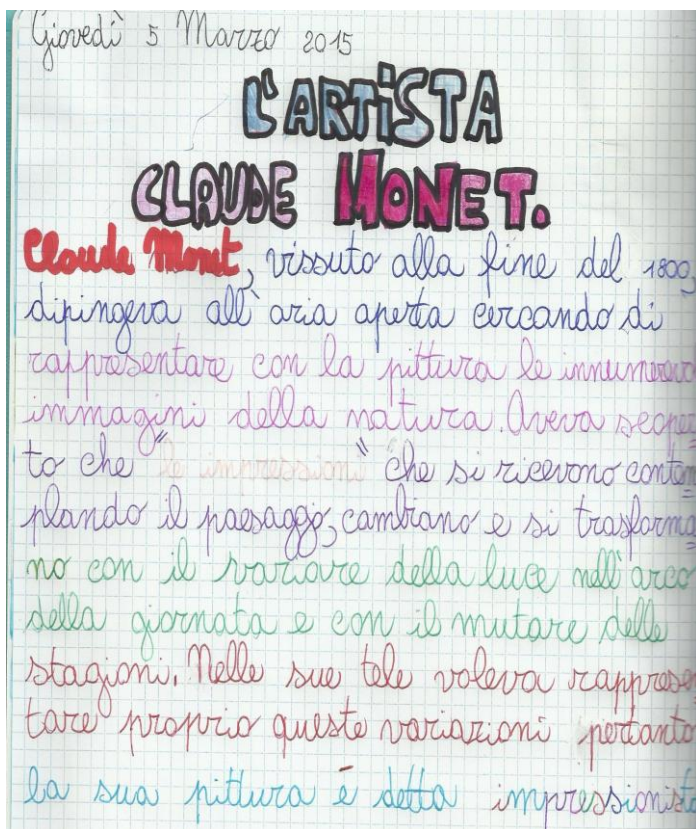 Giovedì 5 Marzo 2015
L'ARTISTA
CLAUDE MONET.
Claude Monet, vissuto alla fine del 1800,
dipingeva all'aria aperta cercando di
rappresentare con la pittura le innumerevo
immagini della natura. Aveva scoper
to che "le impressioni" che si ricevono contem
plando il paesaggio, cambiano e si trasforma
no con il variare della luce nell'arco
della giornata e con il mutare delle
stagioni. Nelle sue tele voleva rappresen
tare proprio queste variazioni pertanto
la sua pittura é detta impressionista